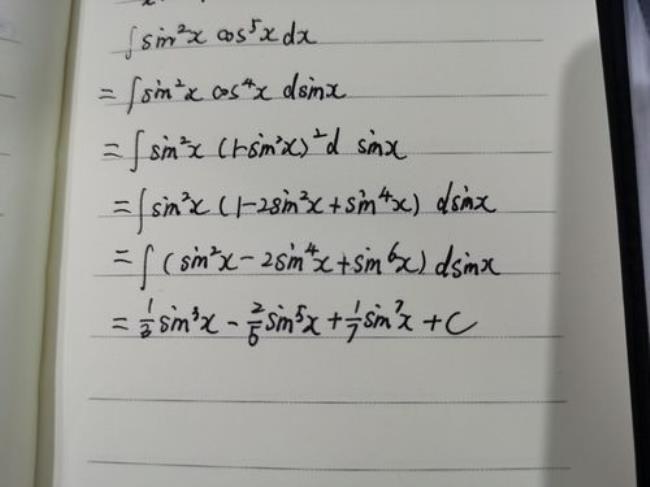 ∫sin²x cos⁵x dx
= ∫sin²x cos⁴x dsinx
= ∫sin²x (1-sin²x)²d sinx
= ∫sin²x (1-2sin²x+sin⁴x) dsinx
= ∫(sin²x-2sin⁴x+sin⁶x) dsinx
= 1/3 sin³x - 2/5 sin⁵x + 1/7 sin⁷x + C